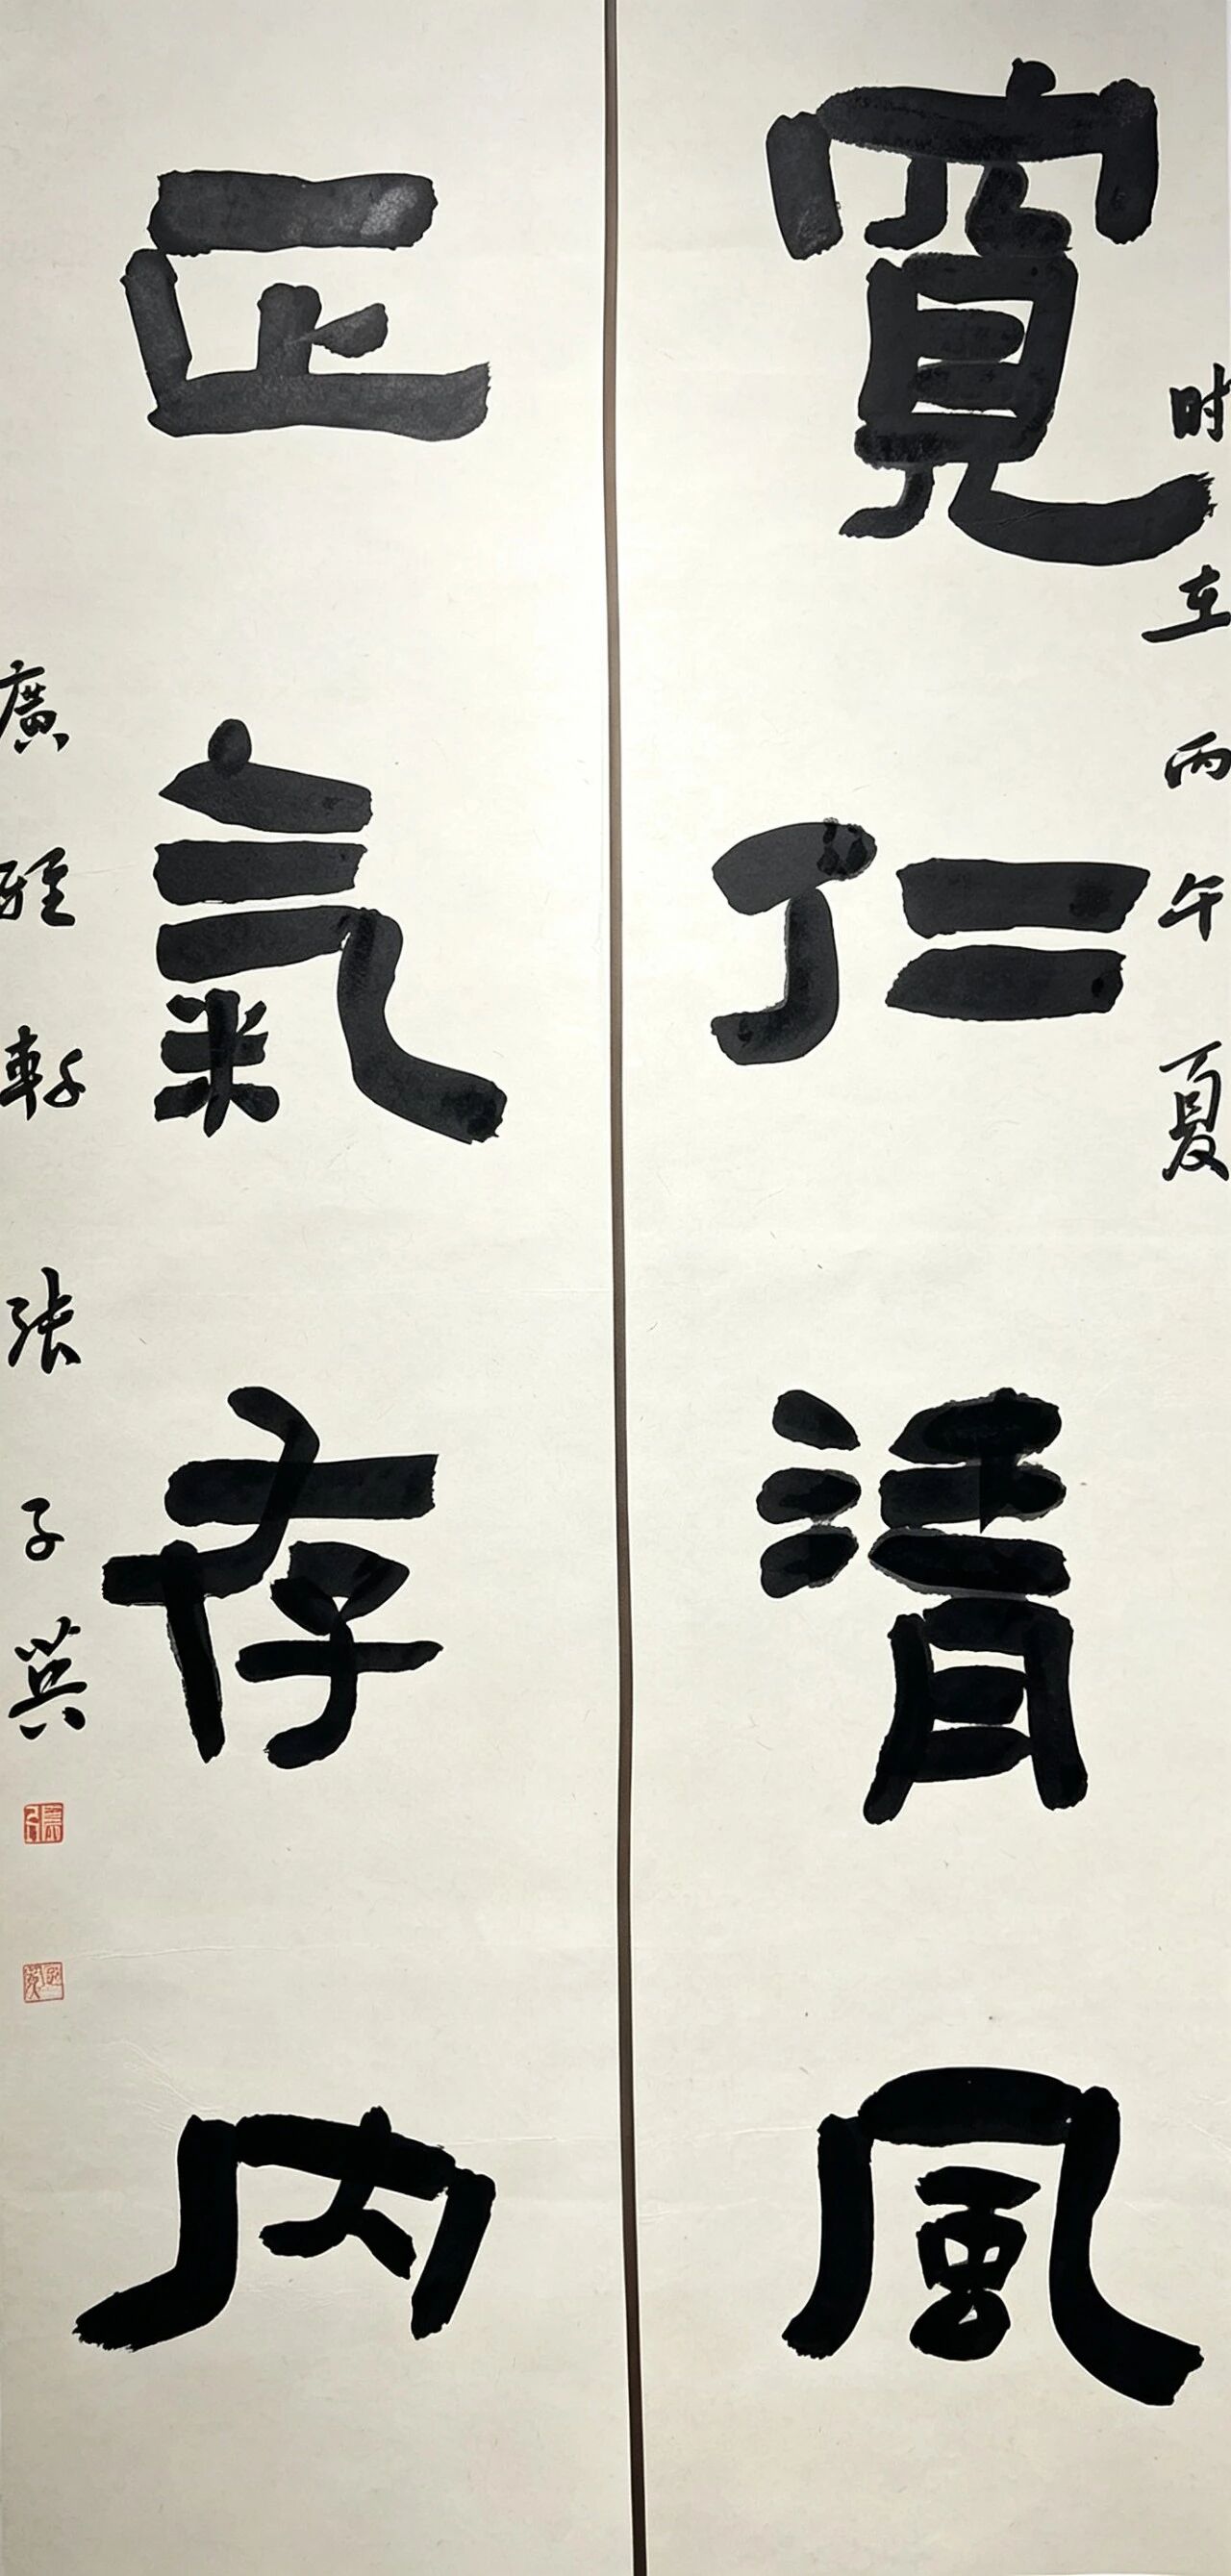 寬仁清風
时在丙午夏
正氣存内
廣雅軒張子英